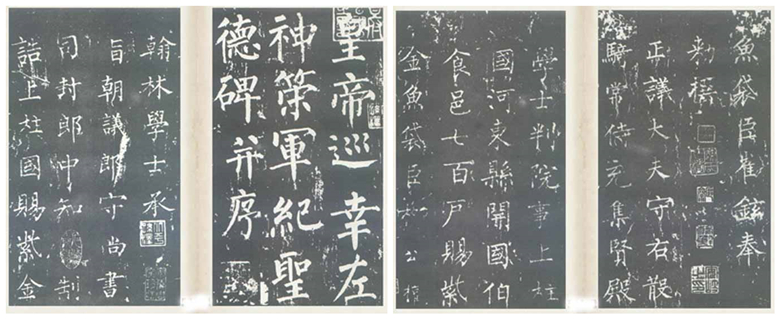 皇帝巡幸左
神策軍紀聖
德碑并序
翰林學士承
旨朝議郎守尚書
司封郎中知制
誥上柱國賜紫金
魚袋臣崔鉉奉
勅撰
正議大夫守右散
騎常侍充集賢殿
學士判院事上柱
國河東縣開國伯
食邑七百戶賜紫
金魚袋臣柳公權